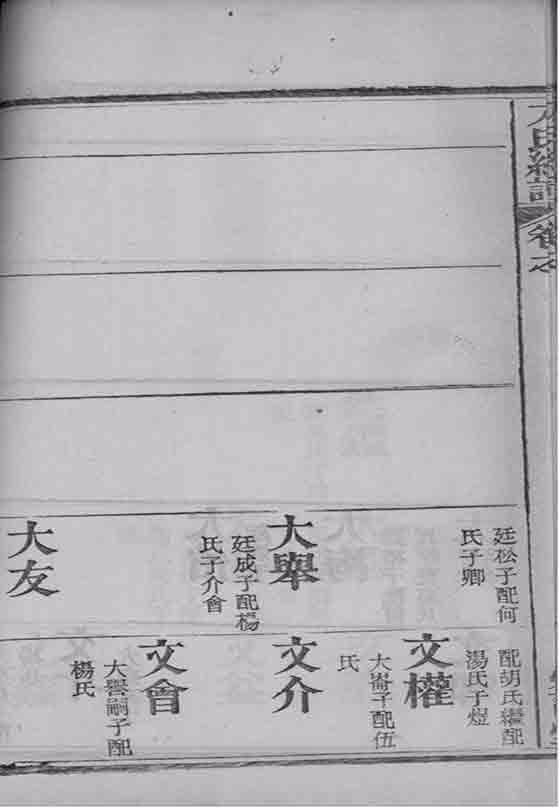 氏總譜
卷之
廷松子配何
氏子卿
大舉
廷成子配楊
氏子介會
大友
配胡氏繼配
湯氏子煜
文權
大崙子配伍
氏
文介
文會
大舉嗣子配
楊氏